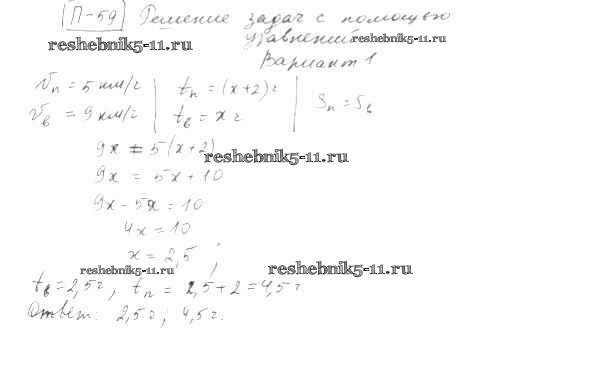 П-59 Решение задач с помощью
уравнений
reshebnik5-11.ru reshebnik5-11.ru
Вариант 1
Vп = 5 км/ч | tп = (x+2) ч | Sп = Sв
Vв = 9 км/ч | tв = x ч
9x = 5(x+2) reshebnik5-11.ru
9x = 5x + 10
9x - 5x = 10
4x = 10
x = 2,5
reshebnik5-11.ru reshebnik5-11.ru
tв = 2,5 ч, tп = 2,5 + 2 = 4,5 ч
Ответ: 2,5 ч; 4,5 ч.